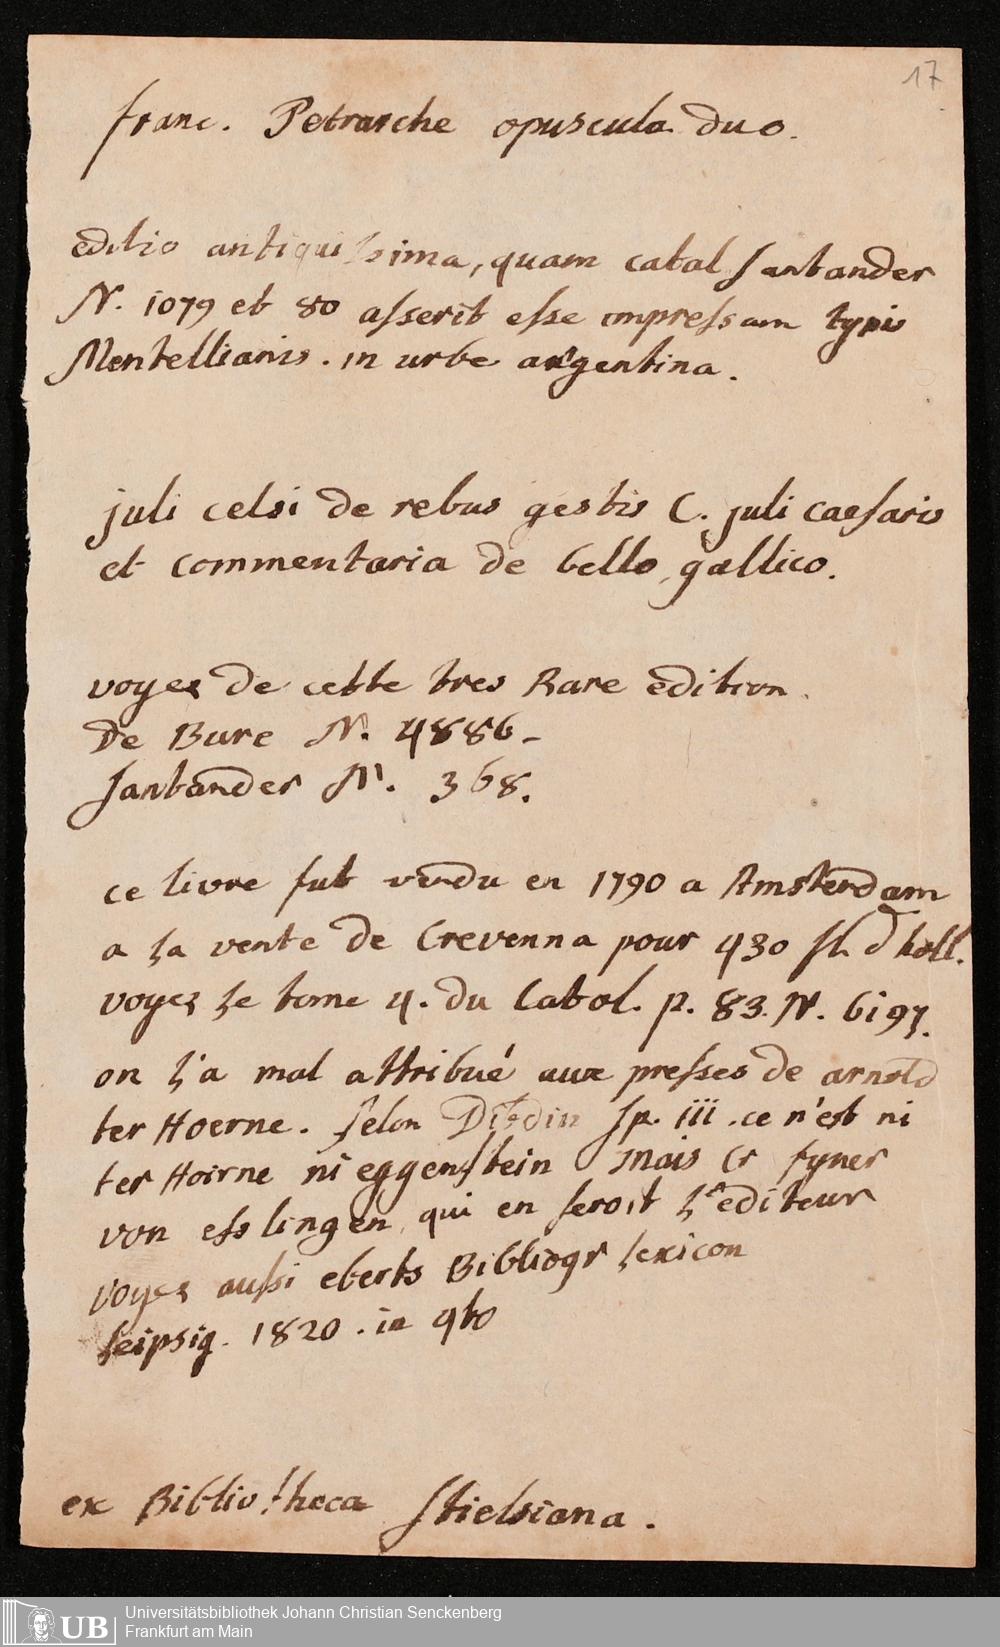 17
franc. Petrarche opuscula duo.
editio antiquissima, quam catal santander
N. 1079 et 80 asserit esse impressam typis
Mentellianis. in urbe argentina.
juli celsi de rebus gestis C. juli caesaris
et commentaria de bello gallico.
voyez de cette tres Rare edition.
De Bure N. 4886-
santander N. 368.
ce livre fut vendu en 1790 a Amsterdam
a la vente de Crevenna pour 430 fl. d holl.
voyez le tome 4. du Catal. p. 83. N. 6197.
on l'a mal attribué aux presses de arnold
ter Hoerne. selon Dibdin sp. iii. ce n'est ni
ter Hoirne ni eggenstein mais fyner
von esslingen qui en seroit l'editeur
voyez aussi eberts Bibliogr lexicon
leipsig. 1820. in qto
ex Bibliotheca Stielsiana.
UB Universitätsbibliothek Johann Christian Senckenberg
Frankfurt am Main